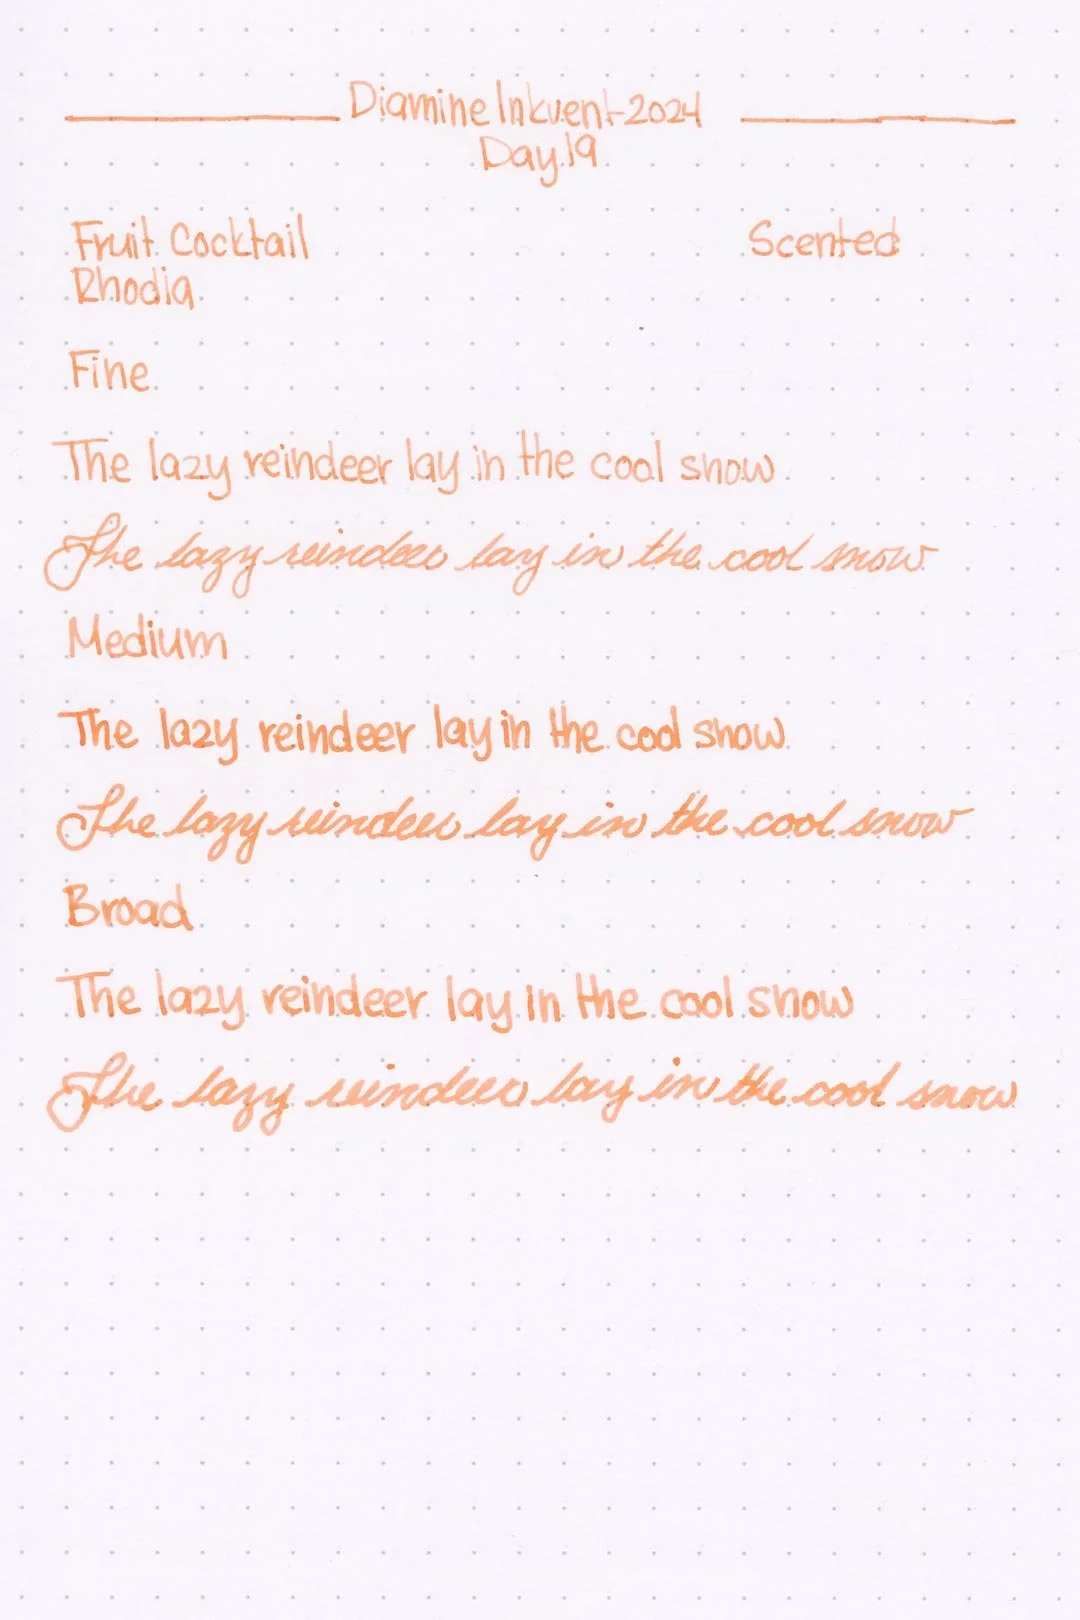 Diamine Inkvent 2024
Day 19
Fruit Cocktail Scented
Rhodia
Fine
The lazy reindeer lay in the cool snow
The lazy reindeer lay in the cool snow
Medium
The lazy reindeer lay in the cool snow
The lazy reindeer lay in the cool snow
Broad
The lazy reindeer lay in the cool snow
The lazy reindeer lay in the cool snow